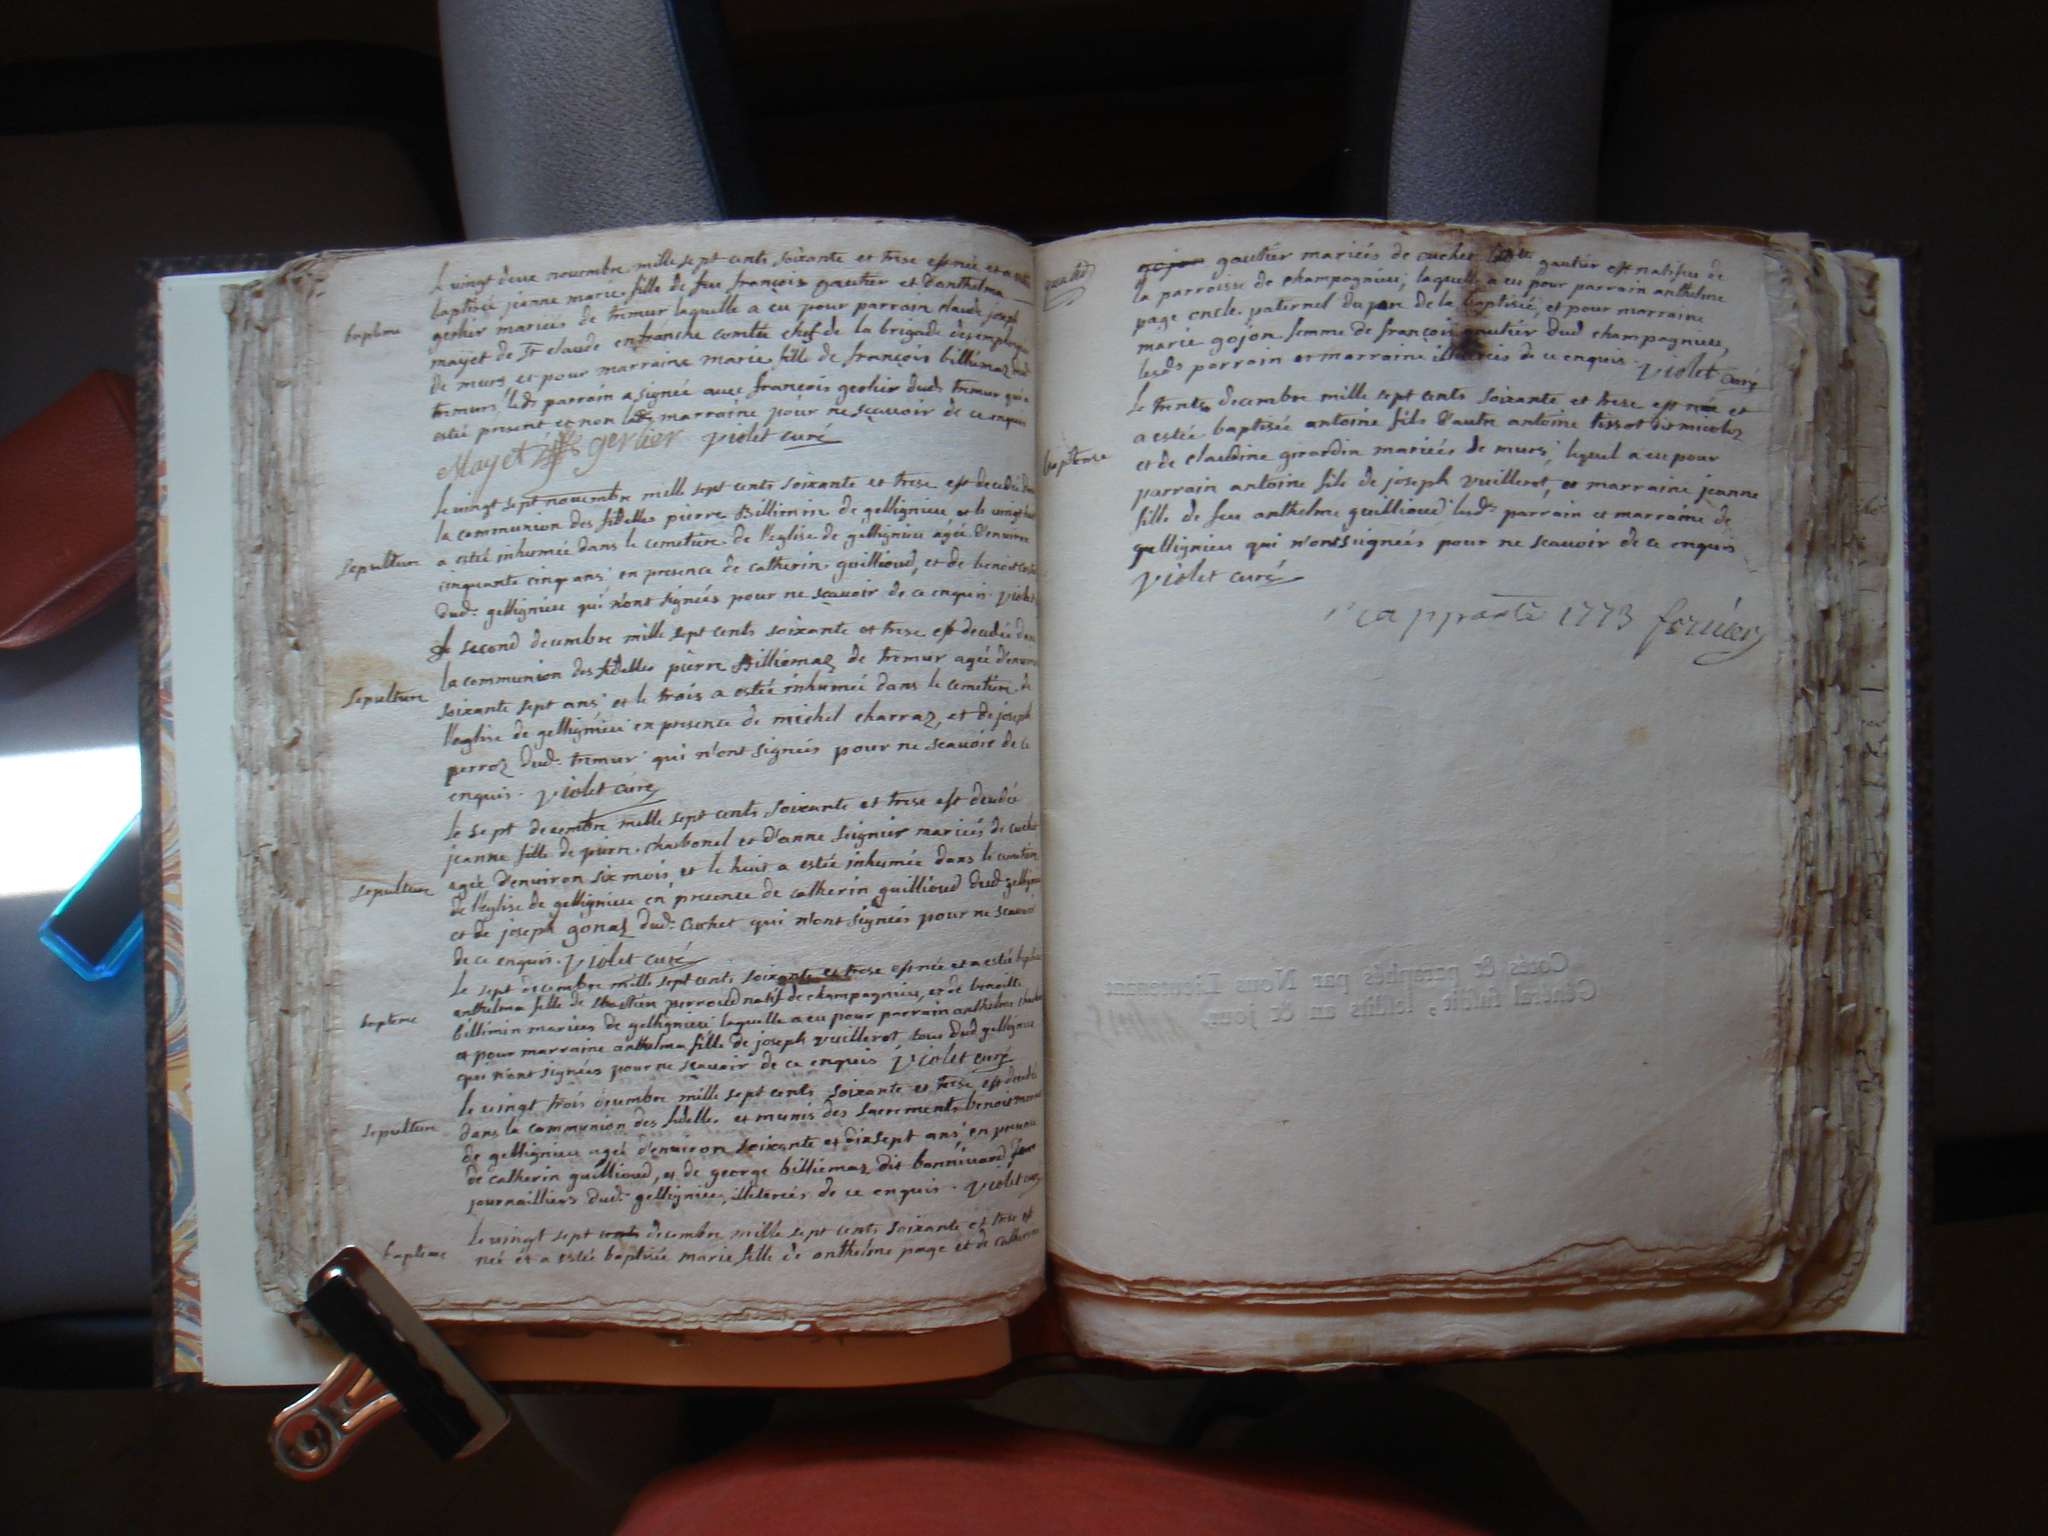 Le vingt deux novembre mille sept cents soixante et trese est née et a estée
baptisée jeanne marie fille de feu françois gautier et d'anthelma
gerlier mariées de tremur laquelle a eu pour parrain claude joseph
bapteme
mayet de St claude en franche comtée chef de la brigade des employés
de murs et pour marraine marie fille de françois billiémaz dud.
tremurs, led. parrain a signée avec françois gerlier dud. tremur qui a
estée present et non lad. marraine pour ne scauoir de ce enquis
Mayet gerlier violet curé
Le vingt sept novembre mille sept cents soixante et trese est decedée dans
la communion des fidelles pierre Billimin de gellignieu et le vingt huit
sepulture a estée inhumée dans le cemetière de l'eglise de gellignieu agée d'environ
cinquante cinq ans, en presence de catherin guillioud, et de benoit
dud. gellignieu qui n'ont signées pour ne scauoir de ce enquis. violet
Le second decembre mille sept cents soixante et trese est decedée dans
la communion des fidelles pierre Billiémaz de tremur agée d'environ
sepulture soixante sept ans, et le trois a estée inhumée dans le cemetière de
l'eglise de gellignieu en presence de michel charraz, et de joseph
perroz dud. tremur qui n'ont signées pour ne scauoir de ce
enquis. violet curé
Le sept decembre mille sept cents soixante et trese est decedée
jeanne fille de pierre charbonel et d'anne seignier mariées de cuchet
agée d'environ six mois, et le huit a estée inhumée dans le cemetière
sepulture de l'eglise de gellignieu en presence de catherin guillioud dud. gellignieu
et de joseph gonaz dud. cuchet qui n'ont signées pour ne scauoir
de ce enquis. violet curé
Le sept decembre mille sept cents soixante et trese est née et a estée baptisée
anthelma fille de sebastien perroud natif de champagnieu, et de benoitte
bapteme billimin mariées de gellignieu laquelle a eu pour parrain anthelme
et pour marraine anthelma fille de joseph vuillerot tous dud. gellignieu
qui n'ont signées pour ne scauoir de ce enquis violet curé
Le vingt trois decembre mille sept cents soixante et trese est decedée
sepulture dans la communion des fidelles et munis des sacrements benoit
de gellignieu agée d'environ soixante et dix sept ans, en presence
de catherin guillioud, et de george billiémaz dit bonnivard
journailliers dud. gellignieu, illeterées de ce enquis. violet curé
Le vingt sept cents decembre mille sept cents soixante et trese est
bapteme née et a estée baptisée marie fille de anthelme page et de catherine
gojon gautier mariées de cuchet gautier est natifue de
la parroisse de champagnieu, laquelle a eu pour parrain anthelme
page oncle paternel du pere de la baptisée, et pour marraine
marie gojon femme de françois gautier dud. champagnieu,
lesds parrain et marraine illeterées de ce enquis. violet curé
Le trente decembre mille sept cents soixante et trese est née et
a estée baptisée antoine fils d'autre antoine tissot dit micoloz
baptême et de claudine girardin mariées de murs, lequel a eu pour
parrain antoine fils de joseph vuillerot, et marraine jeanne
fille de feu anthelme guillioud lesds parrain et marraine de
gellignieu qui n'ont signées pour ne scauoir de ce enquis
violet curé
1773
Cotés & paraphés par Nous Lieutenant
Général susdit, lesdits an & jour.